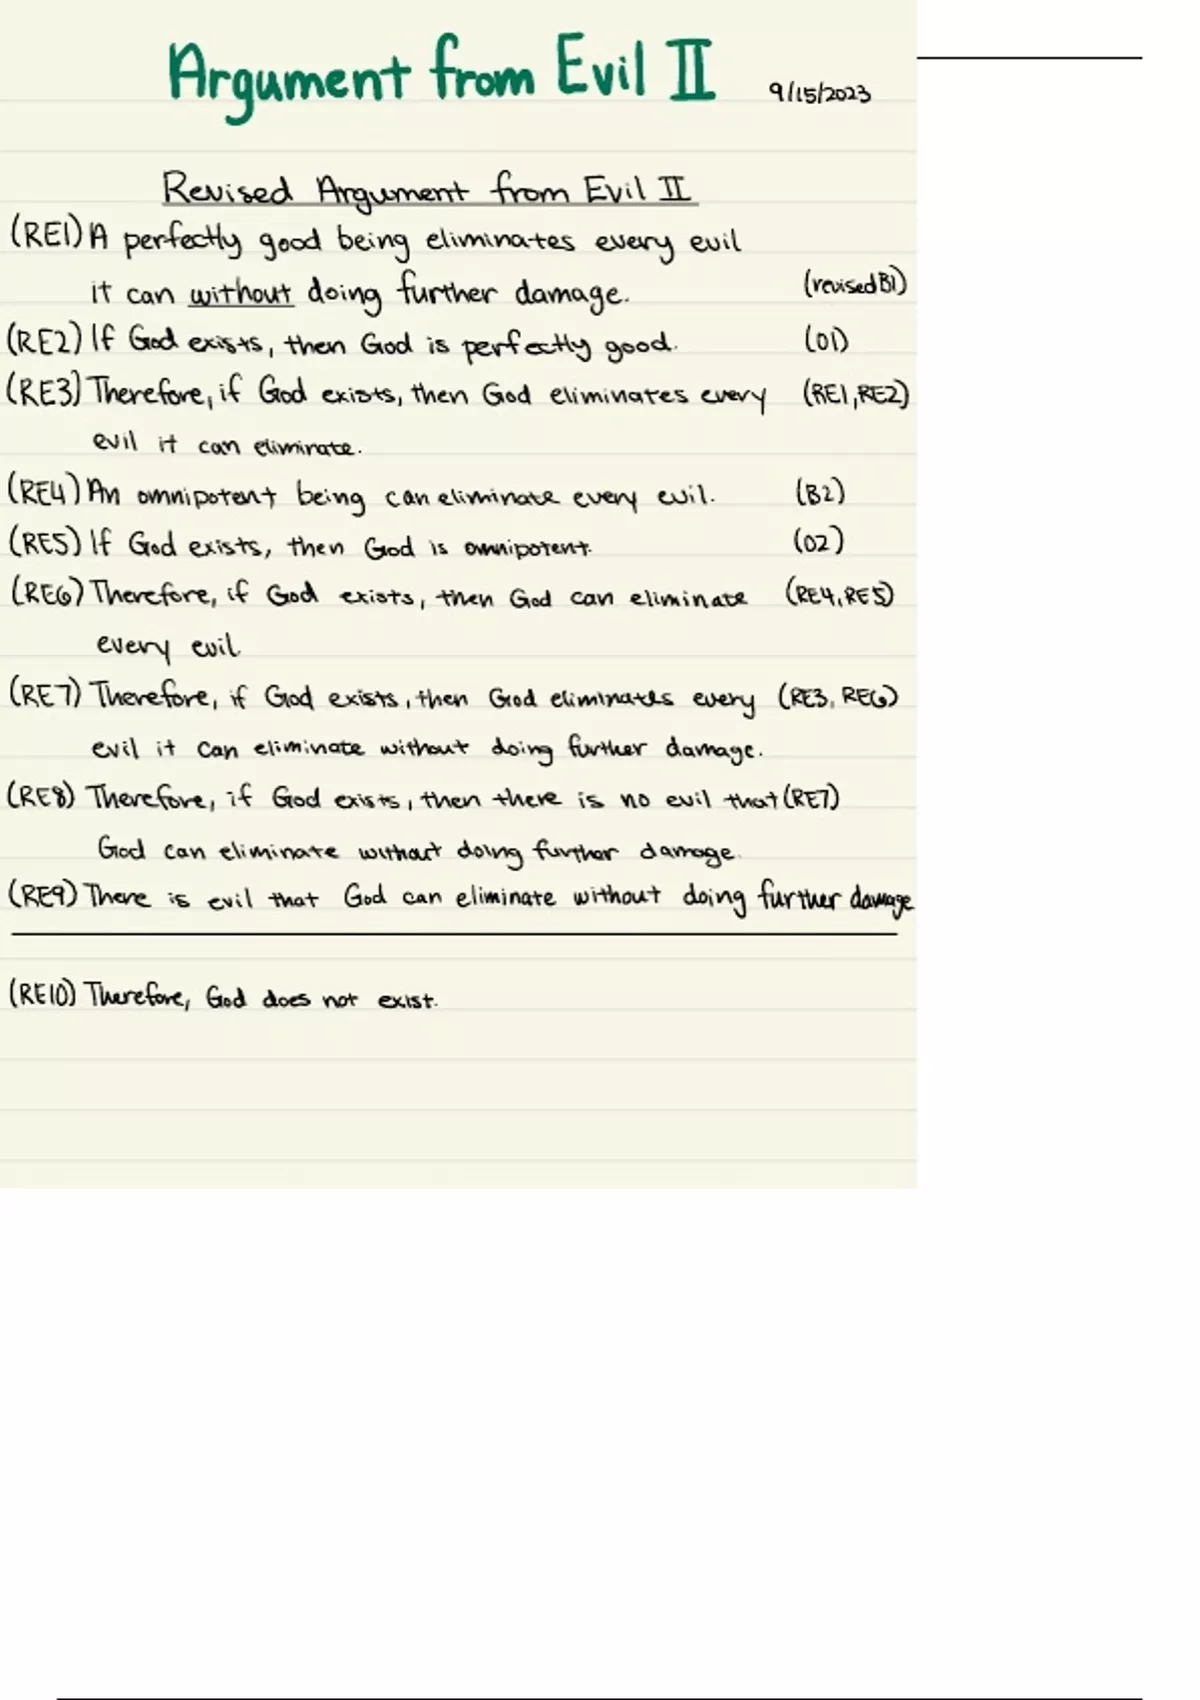 Argument from Evil II 9/15/2023
Revised Argument from Evil II
(RE1) A perfectly good being eliminates every evil
it can without doing further damage. (revised B1)
(RE2) If God exists, then God is perfectly good. (O1)
(RE3) Therefore, if God exists, then God eliminates every (RE1, RE2)
evil it can eliminate.
(RE4) An omnipotent being can eliminate every evil. (B2)
(RE5) If God exists, then God is omnipotent. (O2)
(RE6) Therefore, if God exists, then God can eliminate (RE4, RE5)
every evil.
(RE7) Therefore, if God exists, then God eliminates every (RE3, RE6)
evil it can eliminate without doing further damage.
(RE8) Therefore, if God exists, then there is no evil that (RE7)
God can eliminate without doing further damage.
(RE9) There is evil that God can eliminate without doing further damage
(RE10) Therefore, God does not exist.